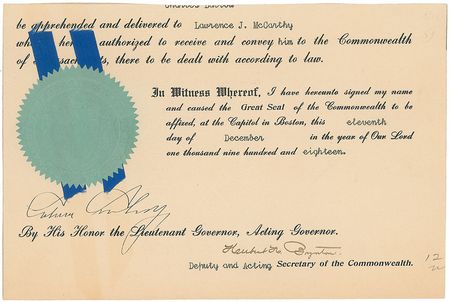 Charles
be apprehended and delivered to Lawrence J. McCarthy
authorized to receive and convey him to the Commonwealth
of there to be dealt with according to law.
In Witness Whereof, I have hereunto signed my name
and caused the Great Seal of the Commonwealth to be
affixed, at the Capitol in Boston, this eleventh
day of December in the year of Our Lord
one thousand nine hundred and eighteen.
By His Honor the Lieutenant Governor, Acting Governor.
Herbert H. Boynton.
Deputy and Acting Secretary of the Commonwealth.
12